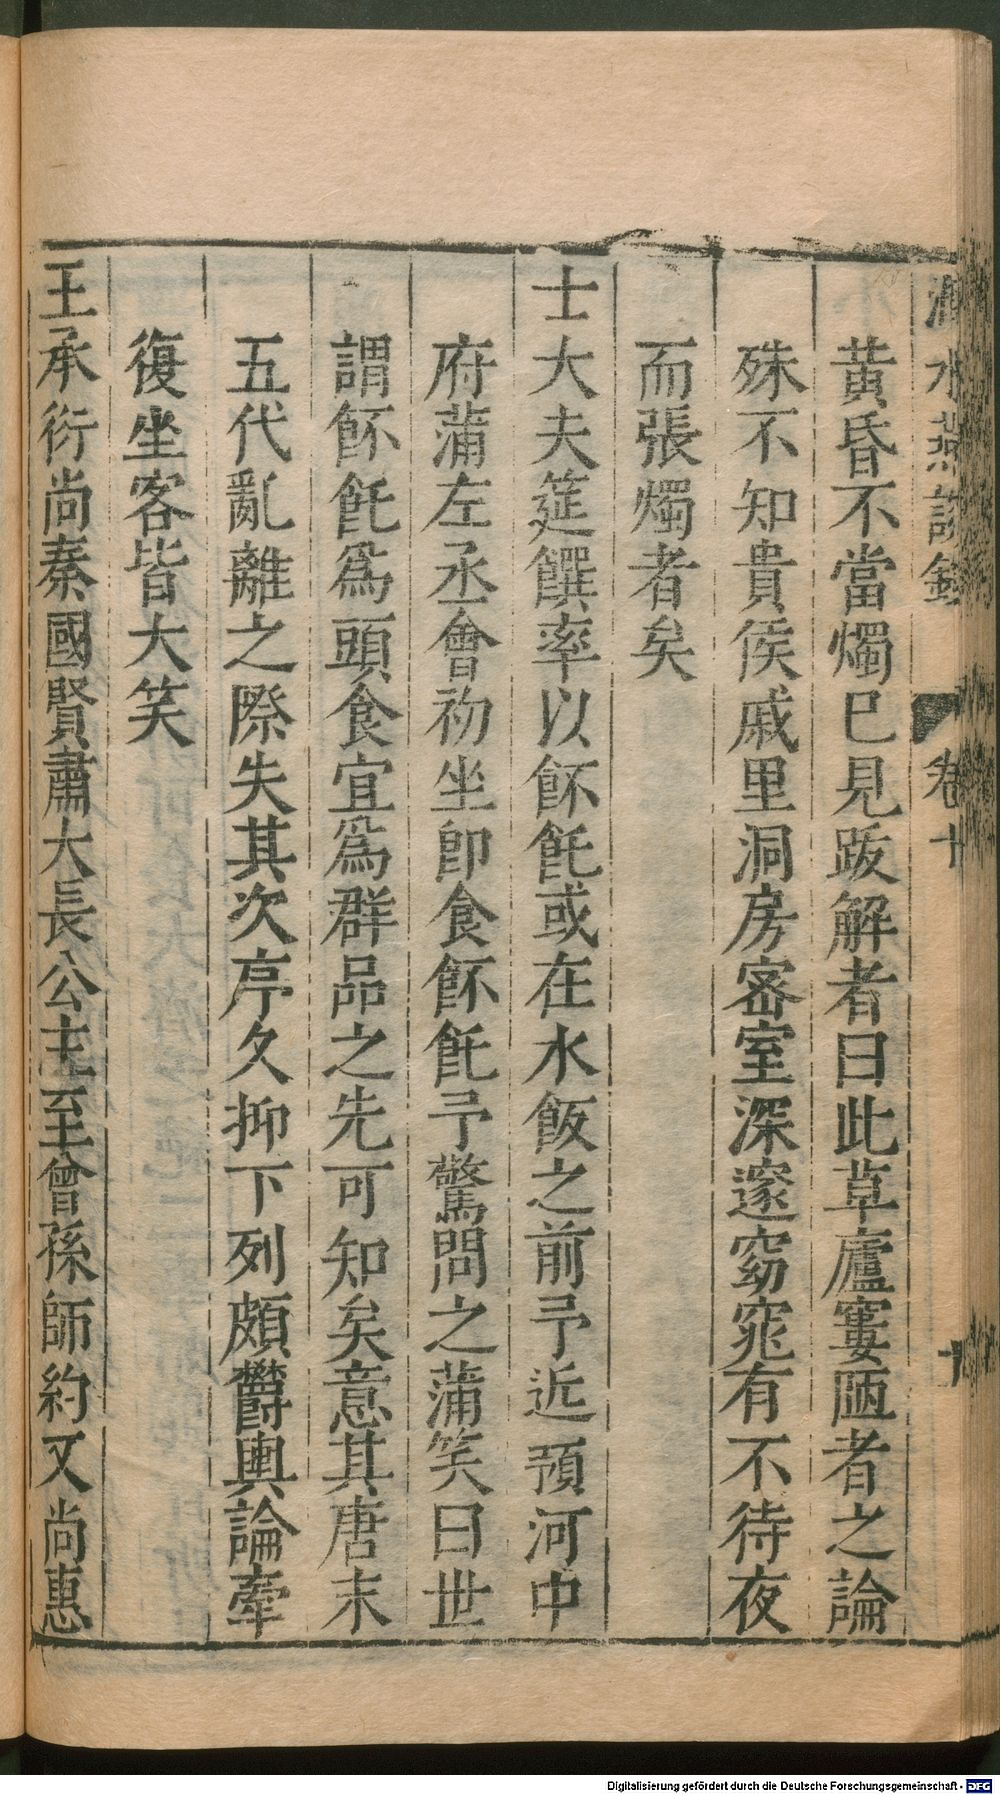 澠水燕談錄 卷十 十
黃昏不當燭巳見跋解者曰此草廬寠陋者之論
殊不知貴侯戚里洞房密室深邃窈窕有不待夜
而張燭者矣
士大夫筵饌率以餅飥或在水飯之前予近預河中
府蒲左丞會初坐卽食餅飥予驚問之蒲笑曰世
謂餅飥爲頭食宜爲群品之先可知矣意其唐末
五代亂離之際失其次序久抑下列頗鬱輿論牽
復坐客皆大笑
王承衍尚秦國賢肅大長公主至曾孫師約又尚惠
Digitalisierung gefördert durch die Deutsche Forschungsgemeinschaft - DFG